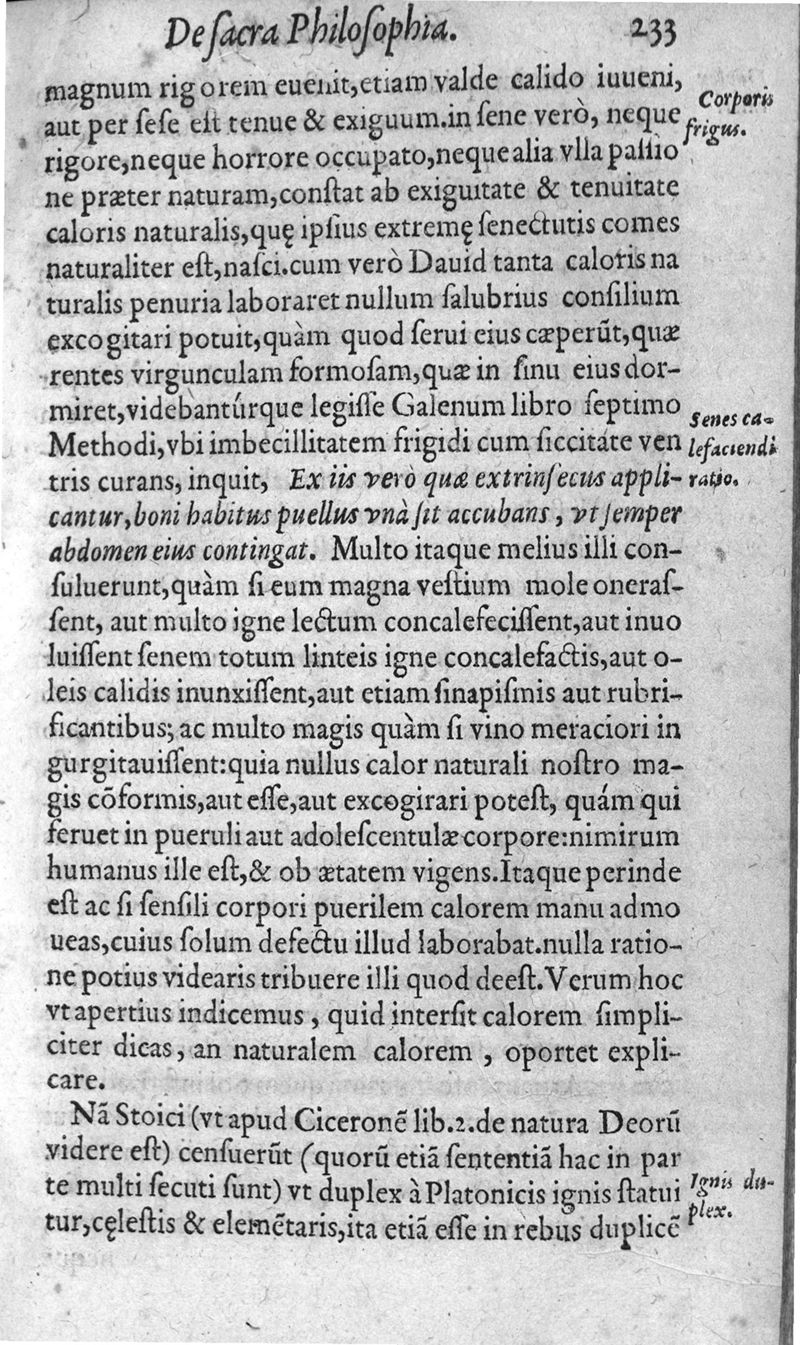 De ſacra Philoſophia. 233
magnum rigorem euenit,etiam valde calido iuueni,
aut per ſeſe eſt tenue & exiguum.in ſene verò, neque
Corporis
frigus.
rigore,neque horrore occupato,neque alia vlla paſſio
ne præter naturam,conſtat ab exiguitate & tenuitate
caloris naturalis,quę ipſius extremę ſenectutis comes
naturaliter eſt,naſci.cum verò Dauid tanta caloris na
turalis penuria laboraret nullum ſalubrius conſilium
excogitari potuit,quàm quod ſerui eius cæperũt,quæ
rentes virgunculam formoſam,quæ in ſinu eius dor-
miret,videbantúrque legiſſe Galenum libro ſeptimo
Methodi,vbi imbecillitatem frigidi cum ſiccitate ven
tris curans, inquit, Ex iis verò quæ extrinſecus appli-
Senes ca-
lefaciendi
ratio.
cantur,boni habitus puellus vnà ſit accubans, vt ſemper
abdomen eius contingat. Multo itaque melius illi con-
ſuluerunt,quàm ſi eum magna veſtium mole oneraſ-
ſent, aut multo igne lectum concalefeciſſent,aut inuo
luiſſent ſenem totum linteis igne concalefactis,aut o-
leis calidis inunxiſſent,aut etiam ſinapiſmis aut rubri-
ficantibus; ac multo magis quàm ſi vino meraciori in
gurgitauiſſent:quia nullus calor naturali noſtro ma-
gis cõformis,aut eſſe,aut excogirari poteſt, quám qui
feruet in pueruli aut adoleſcentulæ corpore:nimirum
humanus ille eſt,& ob ætatem vigens.Itaque perinde
eſt ac ſi ſenſili corpori puerilem calorem manu admo
ueas,cuius ſolum defectu illud laborabat.nulla ratio-
ne potius videaris tribuere illi quod deeſt.Verum hoc
vt apertius indicemus, quid interſit calorem ſimpli-
citer dicas, an naturalem calorem, oportet expli-
care.
Nã Stoici (vt apud Ciceronẽ lib.2.de natura Deorũ
videre eſt) cenſuerũt (quorũ etiã ſententiã hac in par
te multi ſecuti ſunt) vt duplex à Platonicis ignis ſtatui
tur,cęleſtis & elemẽtaris,ita etiã eſſe in rebus duplicẽ
Ignis du-
plex.